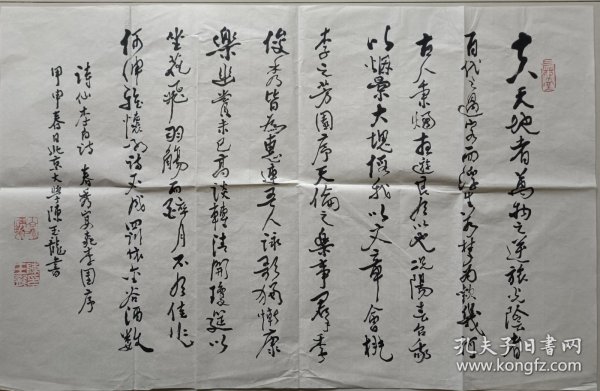 夫天地者萬物之逆旅光陰者
百代之過客而浮生若夢為歡幾何
古人秉燭夜遊良有以也況陽春召我
以煙景大塊假我以文章會桃
李之芳園序天倫之樂事群季
俊秀皆為惠連吾人詠歌獨慚康
樂幽賞未已高談轉清開瓊筵以
坐花飛羽觴而醉月不有佳作
何伸雅懷如詩不成罰依金谷酒數
詩仙李白詩 春夜宴桃李園序
甲申春日北京大學陳玉龍書
孔夫子旧书网